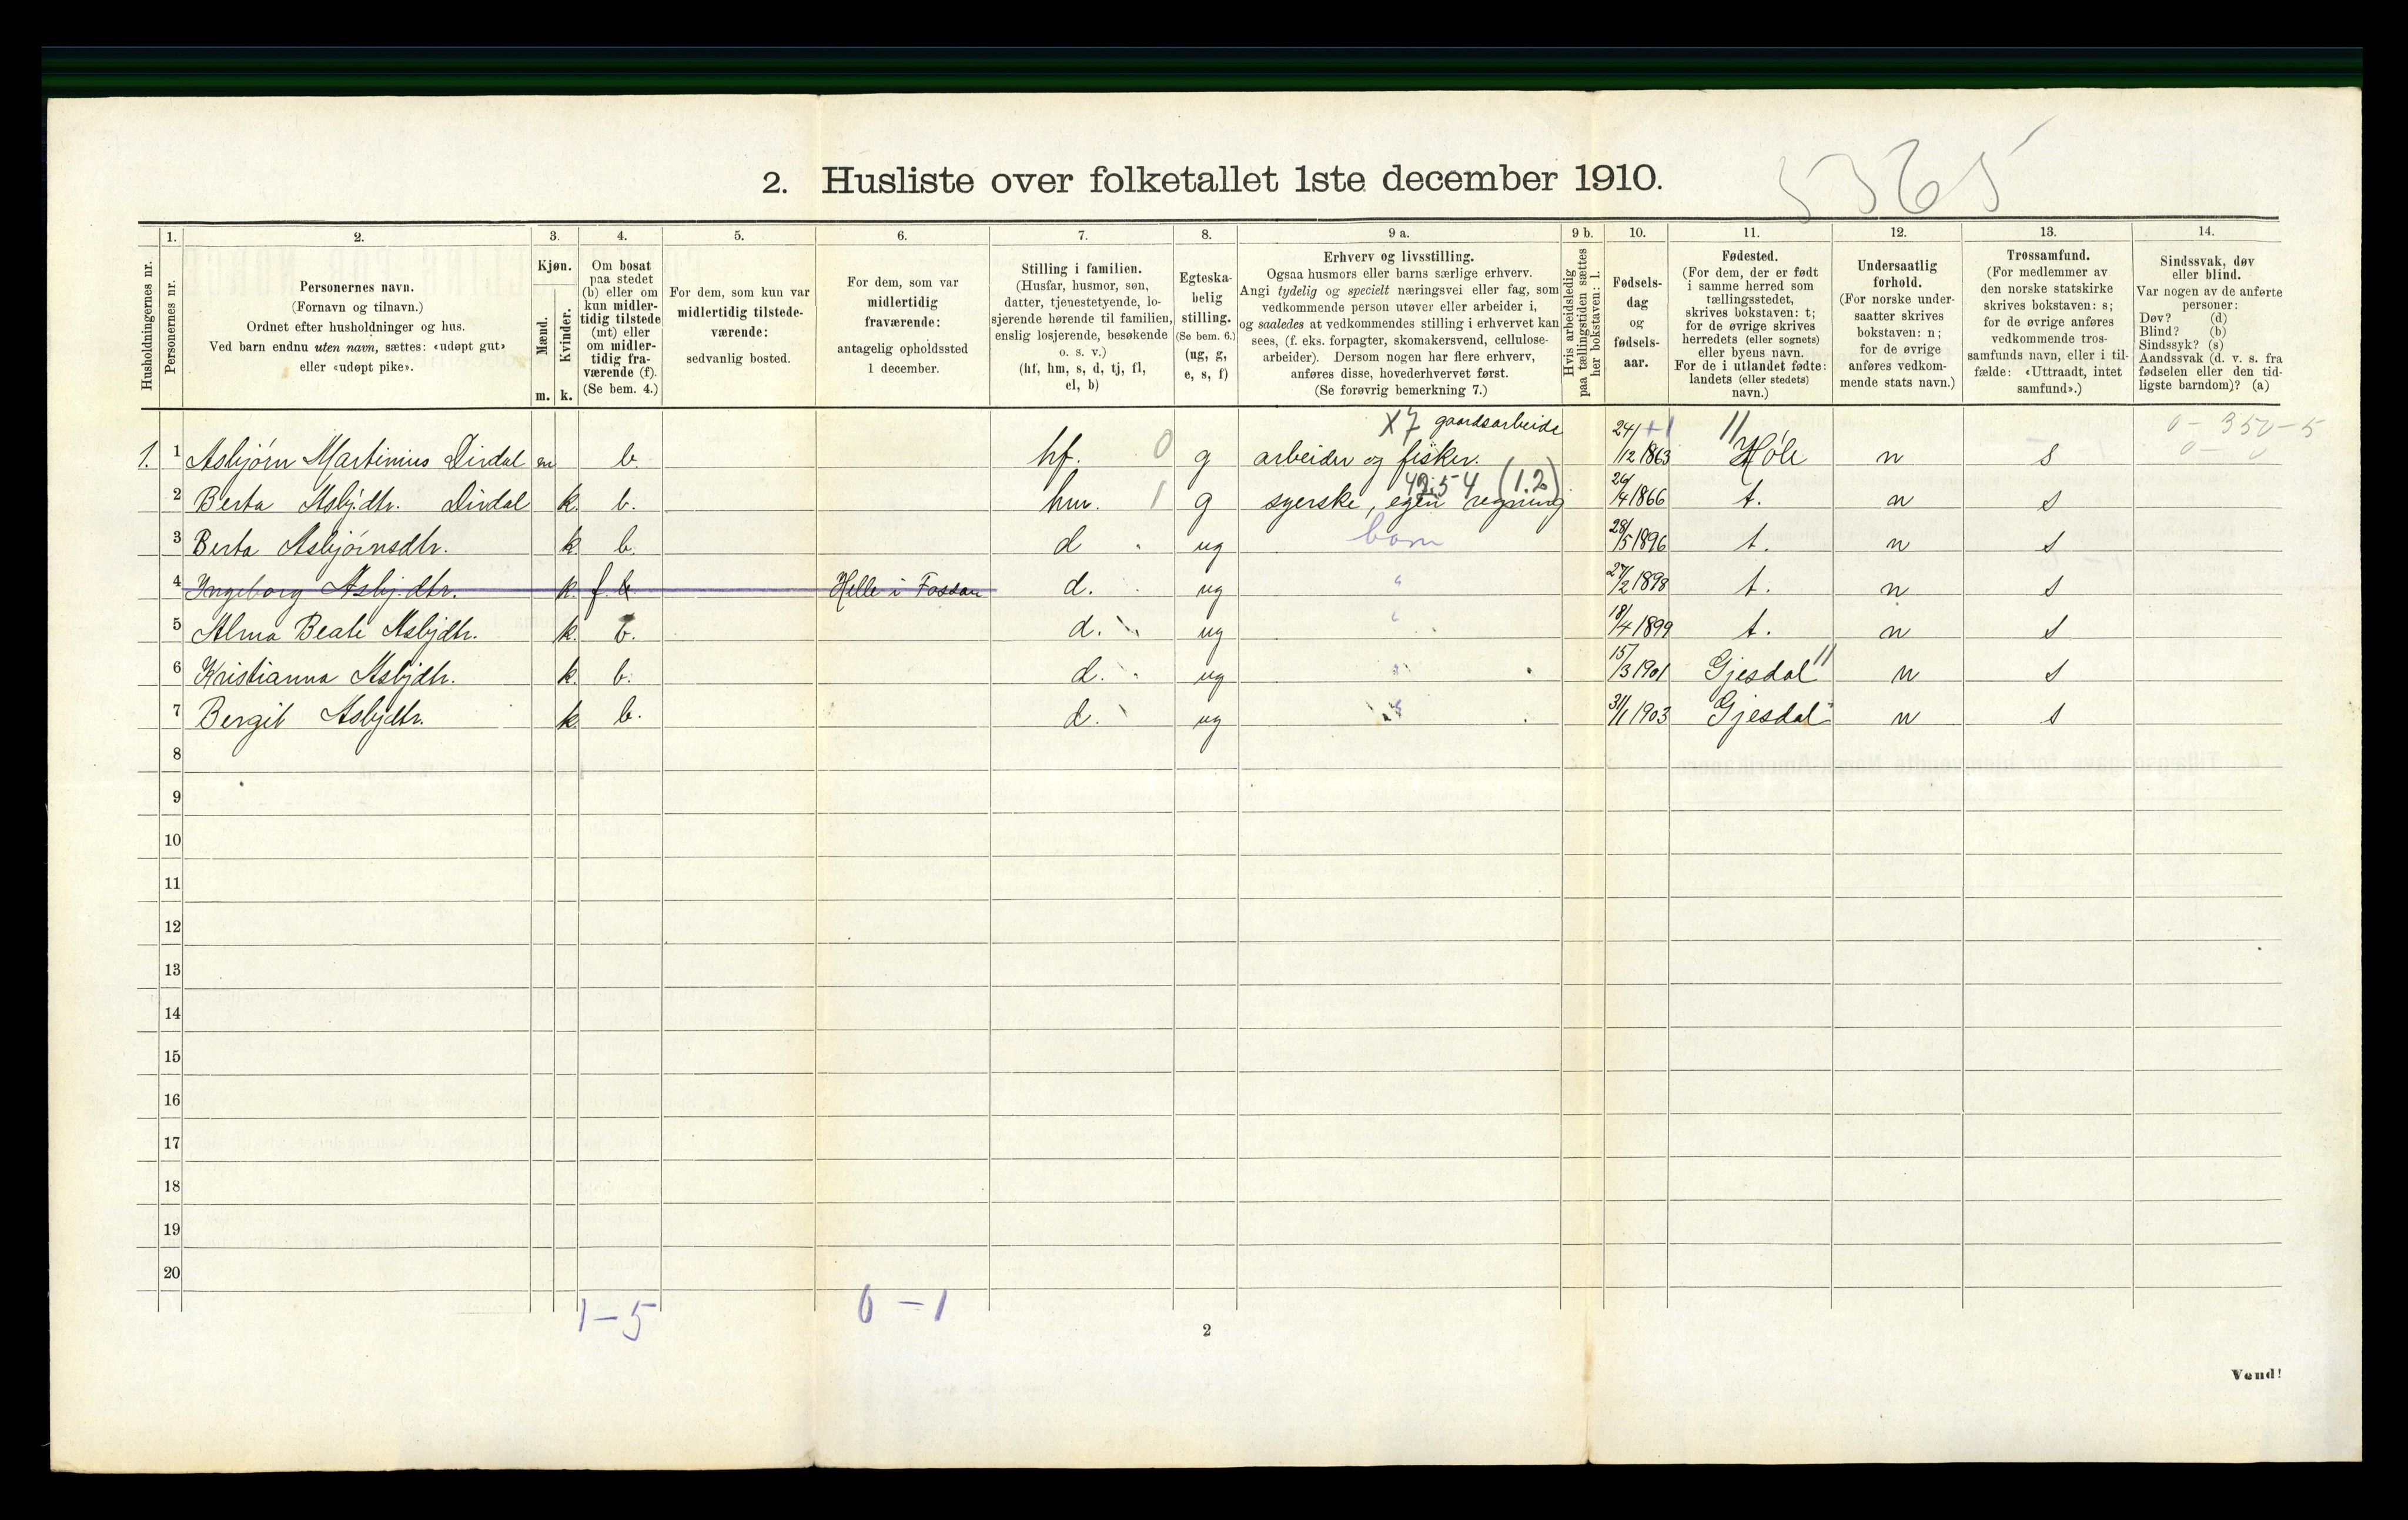 5365
2. Husliste over folketallet 1ste december 1910.
1. 2. 3. 4. 5. 6. 7. 8. 9 a. 9 b. 10. 11. 12. 13. 14.
Husholdningernes nr.
Personernes nr.
Personernes navn.
(Fornavn og tilnavn.)
Ordnet efter husholdninger og hus.
Ved barn endnu uten navn, sættes: «udøpt gut»
eller «udøpt pike».
Kjøn.
Mænd.
Kvinder.
m. k.
Om bosat
paa stedet
(b) eller om
kun midler-
tidig tilstede
(mt) eller
om midler-
tidig fra-
værende (f).
(Se bem. 4.)
For dem, som kun var
midlertidig tilstede-
værende:
sedvanlig bosted.
For dem, som var
midlertidig
fraværende:
antagelig opholdssted
1 december.
Stilling i familien.
(Husfar, husmor, søn,
datter, tjenestetyende, lo-
sjerende hørende til familien,
enslig losjerende, besøkende
o. s. v.)
(hf, hm, s, d, tj, fl,
el, b)
Egteska-
belig
stilling.
(Se bem. 6.)
(ug, g,
e, s, f)
Erhverv og livsstilling.
Ogsaa husmors eller barns særlige erhverv.
Angi tydelig og specielt næringsvei eller fag, som
vedkommende person utøver eller arbeider i,
og saaledes at vedkommendes stilling i erhvervet kan
sees, (f. eks. forpagter, skomakersvend, cellulose-
arbeider). Dersom nogen har flere erhverv,
anføres disse, hovederhvervet først.
(Se forøvrig bemerkning 7.)
Hvis arbeidsledig
paa tællingstiden sættes
her bokstaven: l.
Fødsels-
dag
og
fødsels-
aar.
Fødested.
(For dem, der er født
i samme herred som
tællingsstedet,
skrives bokstaven: t;
for de øvrige skrives
herredets (eller sognets)
eller byens navn.
For de i utlandet fødte:
landets (eller stedets)
navn.)
Undersaatlig
forhold.
(For norske under-
saatter skrives
bokstaven: n;
for de øvrige
anføres vedkom-
mende stats navn.)
Trossamfund.
(For medlemmer av
den norske statskirke
skrives bokstaven: s;
for de øvrige anføres
vedkommende tros-
samfunds navn, eller i til-
fælde: «Uttraadt, intet
samfund».)
Sindssvak, døv
eller blind.
Var nogen av de anførte
personer:
Døv? (d)
Blind? (b)
Sindssyk? (s)
Aandssvak (d. v. s. fra
fødselen eller den tid-
ligste barndom)? (a)
X7 gaardsarbeide 0 - 350 - 5
1. 1 Asbjørn Martinius Dirdal m b. hf. 0 g arbeider og fisker. 24/12 1863 Høle n s
42.54 (1.2)
2 Berta Asbj.dtr. Dirdal k. b. hm. 1 g syerske, egen regning 26/4 1866 t. n s
3 Berta Asbjørnsdtr. k. b. d ug barn 28/5 1896 t. n s
4 Ingeborg Asbj.dtr. k. f. b. Helle i Fossan d. ug " 27/2 1898 t. n s
5 Alma Beate Asbjdtr. k. b. d. ug " 18/4 1899 t. n s
6 Kristianna Asbjdtr. k. b. d. ug " 15/3 1901 Gjesdal n s
7 Bergit Asbjdtr. k b. d. ug " 31/1 1903 Gjesdal n s
8
9
10
11
12
13
14
15
16
17
18
19
20
1 - 5 0 - 1
2
Vend!